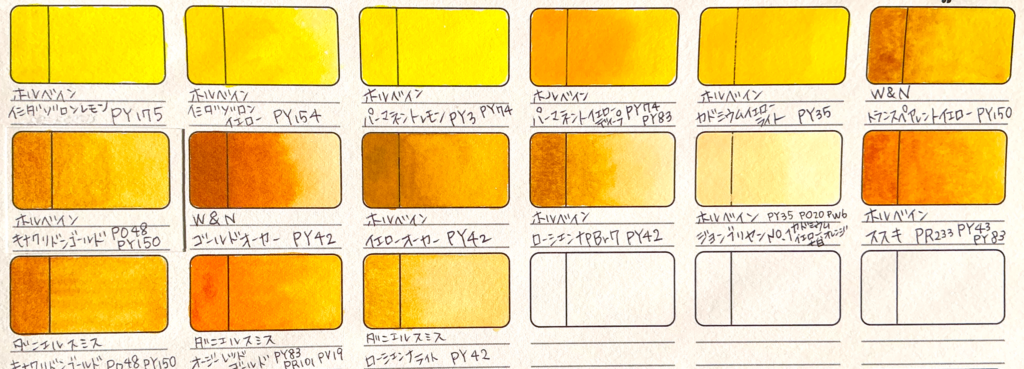 ホルベイン
イミダゾロンレモン PY175
ホルベイン
イミダゾロン
イエロー PY154
ホルベイン
パーマネントレモン PY3 PY74
ホルベイン
パーマネントイエロー ディープ PY74
PY83
ホルベイン
カドミウムイエロー
ライト PY35
W&N
トランスペアレントイエロー PY150
ホルベイン
キナクリドンゴールド PO48
PY150
W&N
ゴールドオーカー PY42
ホルベイン
イエローオーカー PY42
ホルベイン
ローシェンナ PBr7 PY42
ホルベイン PY35 PO20 PW6
ジョンブリヤン NO.1 カドミウム
イエロー オレンジ
ホルベイン
ススキ PR233 PY43
PY83
ダニエルスミス
キナクリドンゴールド PO48 PY150
ダニエルスミス
オージーレッド
ゴールド PY83 PV19
PR101
ダニエルスミス
ローシェンナライト PY42